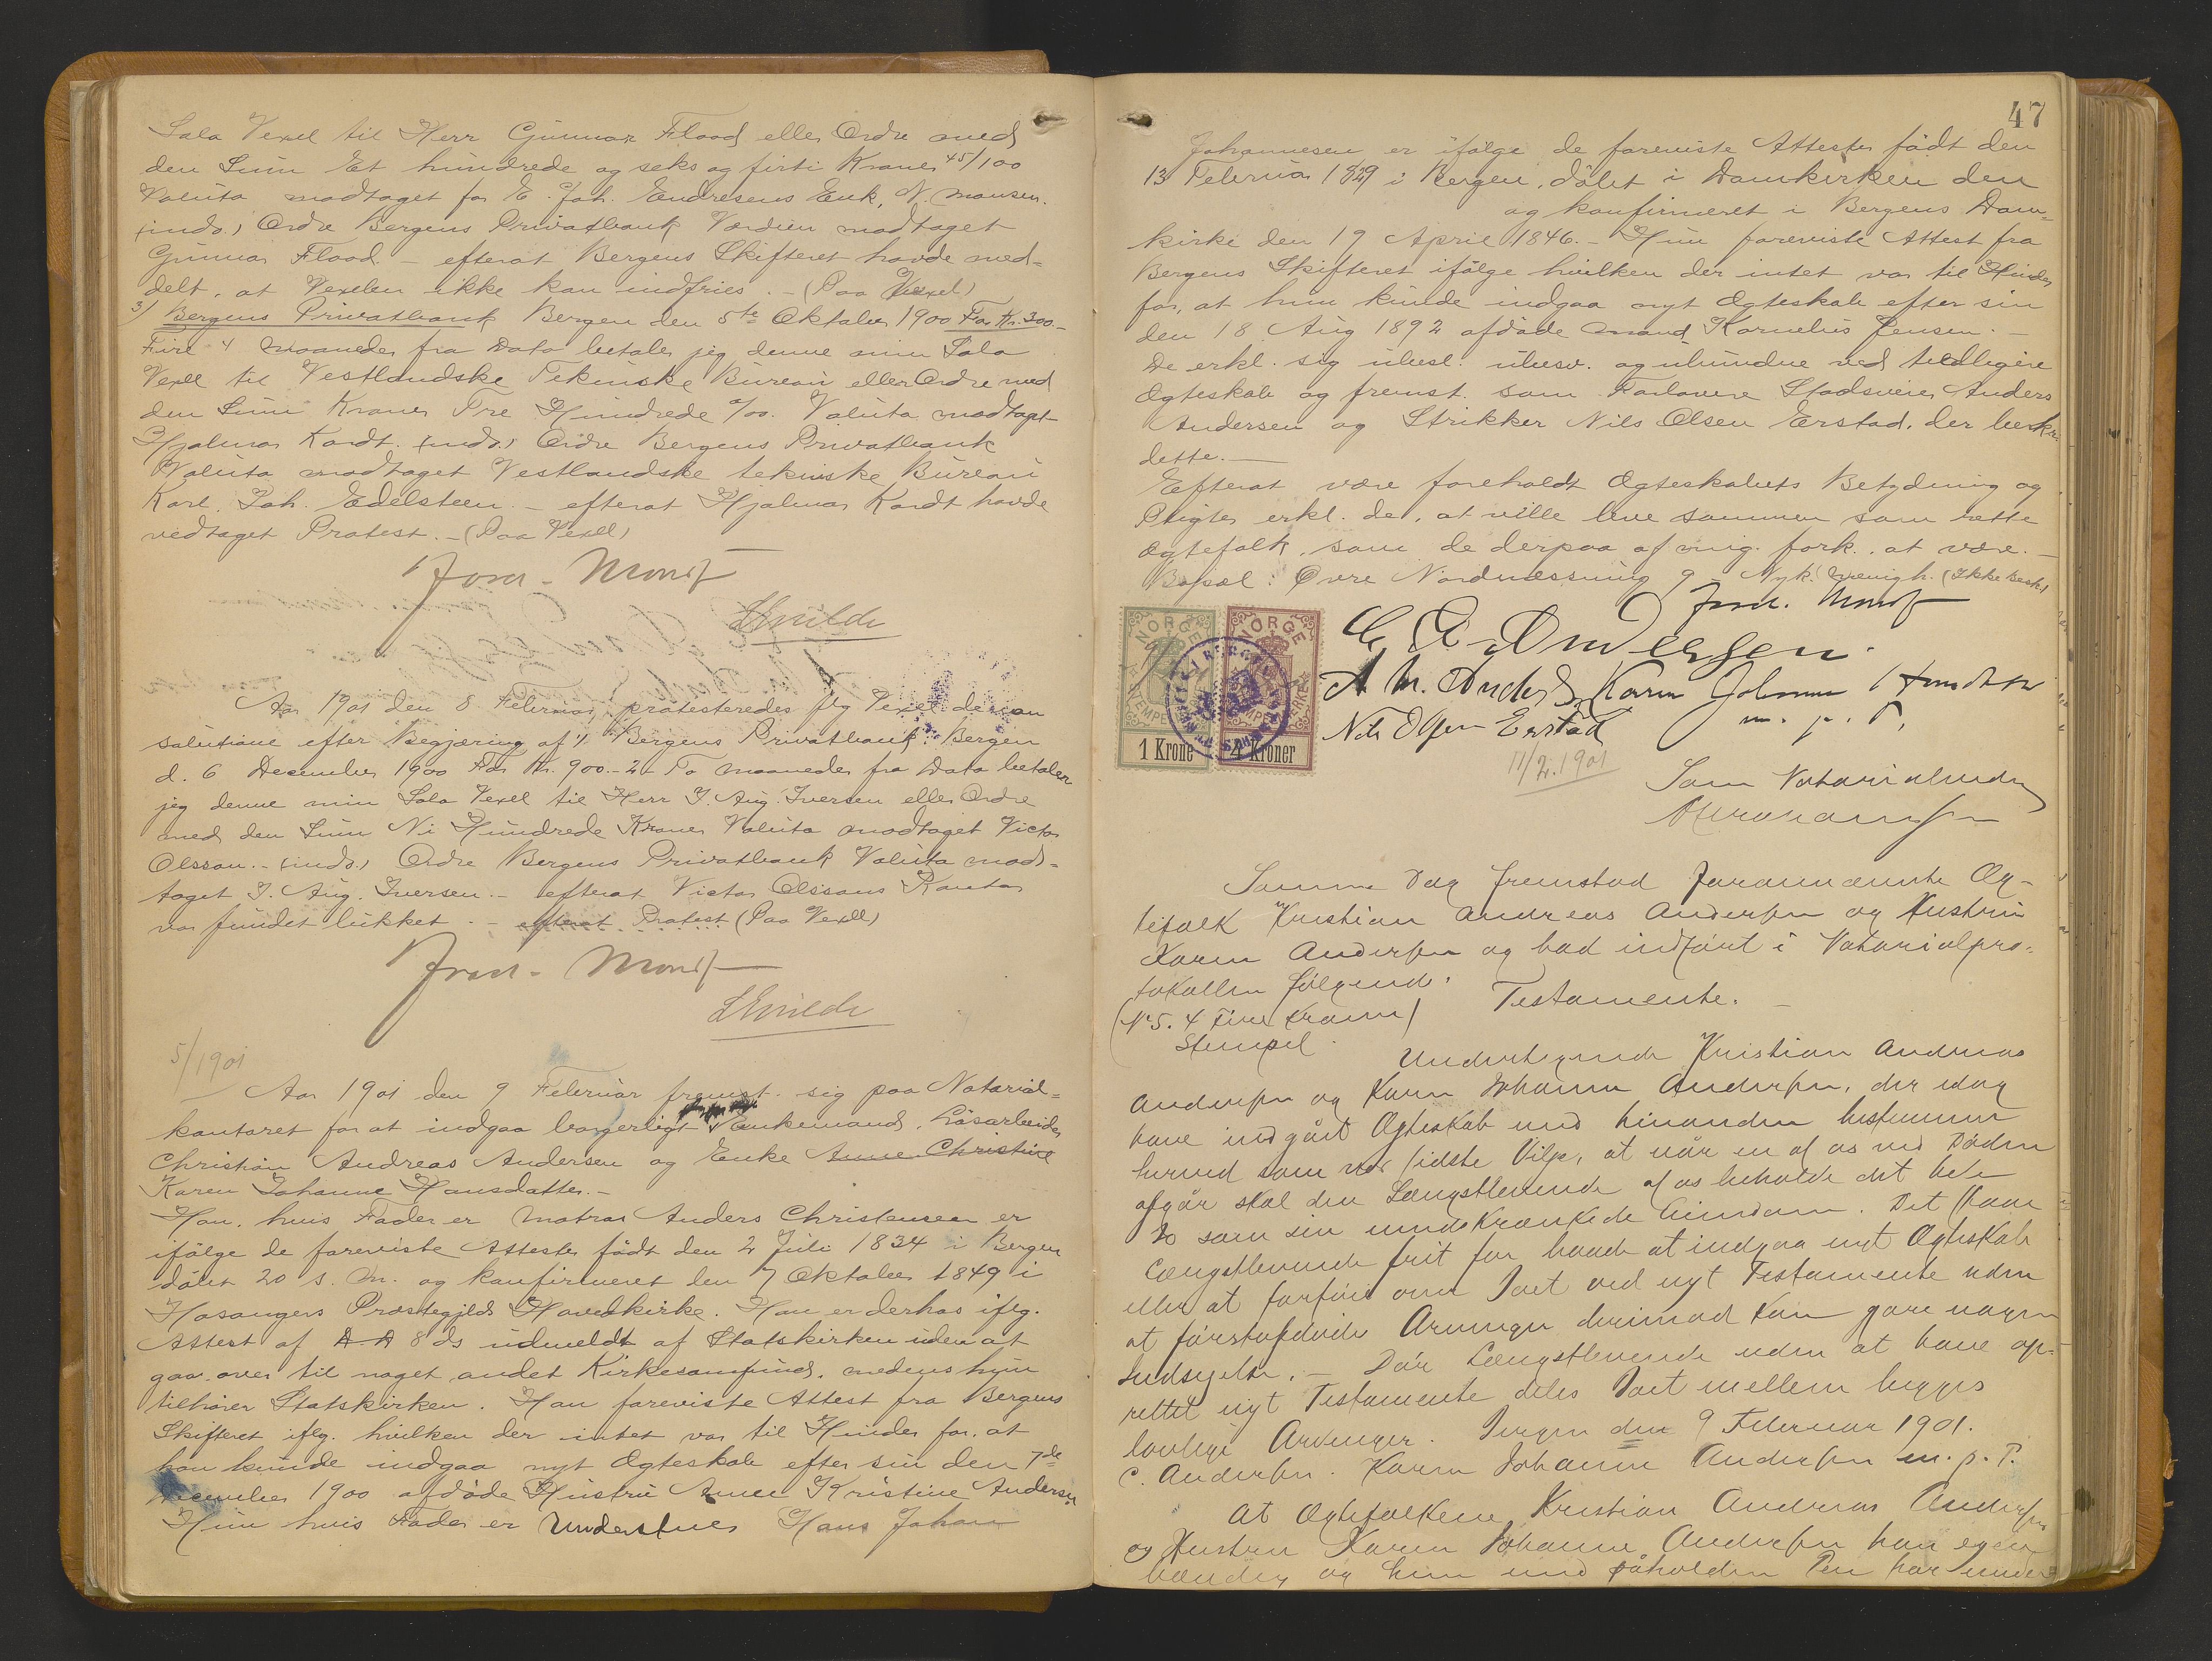 Sola Vexel til Herr Gunnar Flood eller Ordre med
den Sum Et hundrede og seks og firti Kroner 45/100
Valuta modtaget for E. Joh. Endresens Enk, N. Monsen.
(indo.) Ordre Bergens Privatbank Værdien modtaget
Gunnar Flood. – efterat Bergens Skifteret havde med-
delt, at Vexelen ikke kan indfries. – (Paa Vexel)
3) Bergens Privatbank Bergen den 5te Oktober 1900 For Kr. 300.–
Fire 4 Maaneder fra Dato betaler jeg denne min Sola
Vexel til Vestlandske Tekniske Bureau eller Ordre med
den Sum Kroner Tre Hundrede 0/00. Valuta modtaget
Hjalmar Kordt. (indo.) Ordre Bergens Privatbank
Valuta modtaget Vestlandske tekniske Bureau
Karl Joh. Edelsteen. – efterat Hjalmar Kordt havde
vedtaget Protest. – (Paa Vexell)
Aar 1901 den 8 Februar protesteredes flg Vexel de non
solutione efter Begjæring af 1/ Bergens Privatbank: Bergen
d. 6 December 1900 For Kr. 900.– 2– To Maaneder fra Dato betaler
jeg denne min Sola Vexel til Herr J. Aug. Iversen eller Ordre
med den Sum Ni Hundrede Kroner Valuta modtaget Victor
Olsson. – (indo.) Ordre Bergens Privatbank Valuta mod-
taget J. Aug. Iversen. – efterat Victor Olssons Kontor
var fundet lukket. – efterat Protest (Paa Vexell)
5/1901
Aar 1901 den 9 Februar fremst. sig paa Notarial-
kontoret for at indgaa borgerligt Enkemand, Løsarbeider
Christian Andreas Andersen og Enke Anne Christine
Karen Johanne Hansdatter. –
Han, hvis Fader er Matros Anders Christensen er
ifølge de foreviste Attester født den 2 Juli 1834 i Bergen
døbt 20 s. M. og konfirmeret den 7 Oktober 1849 i
Hosangers Præstegjelds Hovedkirke. Han er derhos iflg.
Attest af 8 ds udmeldt af Statskirken uden at
gaa over til noget andet Kirkesamfund, medens hun
tilhører Statskirken. Han foreviste Attest fra Bergens
Skifteret iflg. hvilken der intet var til Hinder for, at
han kunde indgaa nyt Ægteskab efter sin den 7de
December 1900 afdøde Hustru Anne Kristine Andersen
Hun hvis Fader er Hans Johan
47
Johannesen er ifølge de foreviste Attester født den
13 Februar 1829 i Bergen, døbt i Domkirken den
og konfirmeret i Bergens Dom-
kirke den 19 April 1846. – Hun foreviste Attest fra
Bergens Skifteret ifølge hvilken der intet var til Hinder
for, at hun kunde indgaa nyt Ægteskab efter sin
den 18 Aug 1892 afdøde Mand Kornelius Jensen. –
De erkl. sig ubesl. ubesv. og ubundne ved tidligere
Ægteskab og fremst. som Forlovere Stadsveier Anders
Andersen og Strikker Nils Olsen Erstad, der bekr.
dette. –
Efterat være foreholdt Ægteskabets Betydning og
Pligter erkl. de, at ville leve sammen som rette
Ægtefolk, som de derpaa af mig fork. at være. –
Bopæl: Øvre Nordnæssmug 9 – Nyk. (Ikke besk.)
NORGE NORGE
STEMPEL
1 Krone 4 Kroner
C. A. Andersen.
A M. Anders. Karen Johanne Hansdatter
Nils Olsen Erstad m. p. P.
11/2.1901
Som Notarialvidner
Samme Dag fremstod forannævnte Æg-
tefolk Kristian Andreas Andersen og Hustru
Karen Andersen og bad indført i Notarialpro-
tokollen følgende:
(No 5. 4 Fire Kroner) Testamente. –
Stempel.
Undertegnede Kristian Andreas
Andersen og Karen Johanne Andersen, der idag
have indgået Ægteskab med hinanden bestemmer
herved som vor sidste Vilje, at når en af os ved Døden
afgår skal den Længstlevende af os beholde det hele
Bo som sin uindskrænkede Eiendom. Det staar
Længstlevende frit for baade at indgaa nyt Ægteskab
eller at forføie over Boet ved nyt Testamente uden
at førstafdødes Arvinger derimod kan gøre nogen
Indsigelse. – Dør Længstlevende uden at have op-
rettet nyt Testamente deles Boet mellem begges
lovlige Arvinger. Bergen den 9 Februar 1901.
C. Andersen. Karen Johanne Andersen m. p. P.
At Ægtefolkene Kristian Andreas Andersen
og Hustru Karen Johanne Andersen han egen-
hændig og hun med påholden Pen har under